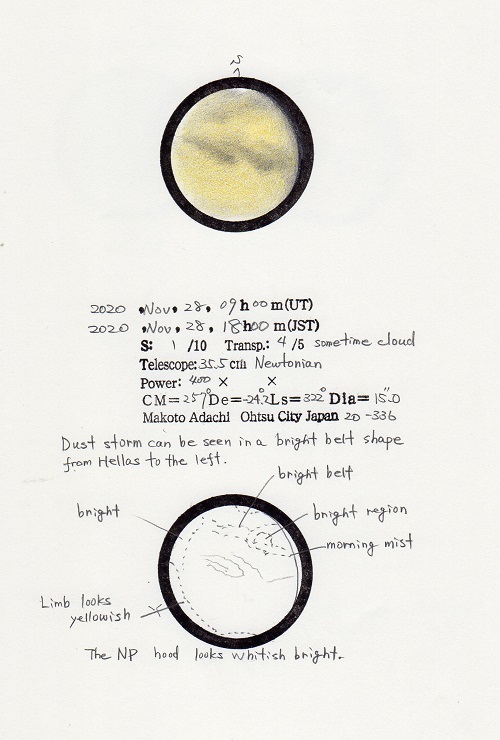 S
2020 Nov. 28, 09h00m(UT)
2020 Nov. 28, 18h00m(JST)
S: 1 /10 Transp.: 4 /5 sometime cloud
Telescope: 35.5 cm Newtonian
Power: 400 × ×
CM=257° De=-24.2° Ls=322° Dia=15.0"
Makoto Adachi Ohtsu City Japan 20-336
Dust storm can be seen in a bright belt shape
from Hellas to the left.
bright belt
bright
bright region
morning mist
Limb looks
yellowish
The NP hood looks whitish bright.